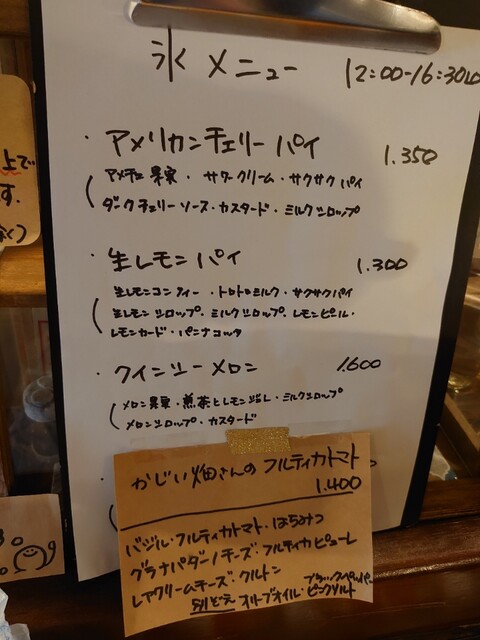 氷メニュー 12:00-16:30LO
・アメリカンチェリーパイ 1.350
(アメチェ果実・サワークリーム・サクサクパイ
ダークチェリーソース・カスタード・ミルクシロップ
・生レモンパイ 1.300
(生レモンコンディー・トロトロミルク・サクサクパイ
生レモンシロップ・ミルクシロップ・レモンピール・
レモンカード・パンナコッタ
・クインシーメロン 1.600
(メロン果実・煎茶とレモンジュレ・ミルクシロップ
メロンシロップ・カスタード
かじい畑さんのフルティカトマト
1.400
バジル・フルティカトマト・はちみつ
グラナパダーノチーズ・フルティカピューレ
レアクリームチーズ・クルトン
別ぞえ オリーブオイル・ブラックペッパー
ピンクソルト
上で
す.